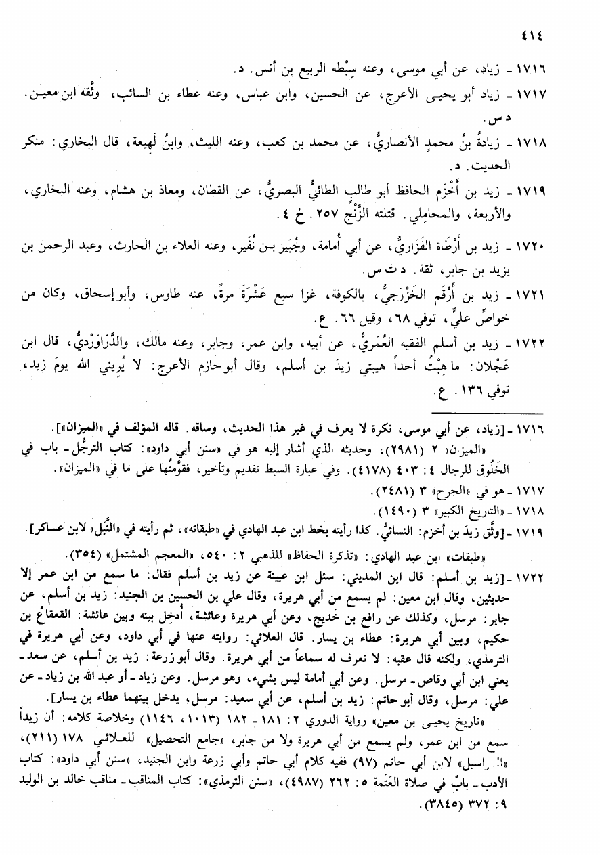 ٤١٤
١٧١٦ ـ زياد، عن أبي موسى، وعنه سِبْطه الربيع بن أنس. د.
١٧١٧ ـ زياد أبو يحيى الأعرج، عن الحسين، وابن عباس، وعنه عطاء بن السائب، وثَّقه ابن معين.
د س.
١٧١٨ ـ زيادةُ بنُ محمدٍ الأنصاريُّ، عن محمد بن كعب، وعنه الليث، وابنُ لَهِيعة، قال البخاري: منكر
الحديث. د.
١٧١٩ ـ زيد بن أَخْزَم الحافظ أبو طالبٍ الطائيُّ البصريُّ، عن القطان، ومعاذ بن هشام، وعنه البخاري،
والأربعة، والمحاملي. قتلته الزَّنْج ٢٥٧. خ ٤.
١٧٢٠ ـ زيد بن أَرْطَاة الفَزَاريُّ، عن أبي أُمامة، وجُبَير بن نُفَير، وعنه العلاء بن الحارث، وعبد الرحمن بن
يزيد بن جابر، ثقة. د ت س.
١٧٢١ ـ زيد بن أَرْقَم الخَزْرَجيُّ، بالكوفة، غزا سبع عَشْرَةَ مرةً، عنه طاوس، وأبو إسحاق، وكان من
خواصِّ عليٍّ، توفي ٦٨، وقيل ٦٦. ع.
١٧٢٢ ـ زيد بن أسلم الفقيه العُمَريُّ، عن أبيه، وابن عمر، وجابر، وعنه مالك، والدَّرَاوَرْديُّ، قال ابن
عَجْلان: ما هِبْتُ أحداً هيبتي زيدَ بن أسلم، وقال أبو حازم الأعرج: لا يُرِيني الله يومَ زيد،
توفي ١٣٦. ع.
١٧١٦ ـ [زياد، عن أبي موسى، نكرة لا يعرف في غير هذا الحديث، وساقه. قاله المؤلف في «الميزان»].
«الميزان» ٢ (٢٩٨١)، وحديثه الذي أشار إليه هو في «سنن أبي داود»: كتاب الترجُّل ـ باب في
الخَلُوق للرجال ٤: ٤٠٣ (٤١٧٨). وفي عبارة السبط تقديم وتأخير، فقوَّمتُها على ما في «الميزان».
١٧١٧ ـ هو في «الجرح» ٣ (٢٤٨١).
١٧١٨ ـ «التاريخ الكبير» ٣ (١٤٩٠).
١٧١٩ ـ [وثَّق زيدَ بن أخزم: النسائيُّ. كذا رأيته بخط ابن عبد الهادي في «طبقاته»، ثم رأيته في «النَّبَل» لابن عساكر].
«طبقات» ابن عبد الهادي: «تذكرة الحفاظ» للذهبي ٢: ٥٤٠، «المعجم المشتمل» (٣٥٤).
١٧٢٢ ـ [زيد بن أسلم: قال ابن المديني: سئل ابن عيينة عن زيد بن أسلم فقال: ما سمع من ابن عمر إلا
حديثين، وقال ابن معين: لم يسمع من أبي هريرة، وقال علي بن الحسين بن الجنيد: زيد بن أسلم، عن
جابر: مرسل، وكذلك عن رافع بن خديج، وعن أبي هريرة وعائشة، أَدخل بينه وبين عائشة: القعقاعَ بن
حكيم، وبين أبي هريرة: عطاء بن يسار. قال العلائي: روايته عنها في أبي داود، وعن أبي هريرة في
الترمذي، ولكنه قال عقبه: لا نعرف له سماعاً من أبي هريرة. وقال أبو زرعة: زيد بن أسلم، عن سعد ـ
يعني ابن أبي وقاص ـ مرسل. وعن أبي أمامة ليس بشيء، وهو مرسل. وعن زياد ـ أو عبد الله بن زياد ـ عن
علي: مرسل، وقال أبو حاتم: زيد بن أسلم، عن أبي سعيد: مرسل، يدخل بينهما عطاء بن يسار].
«تاريخ يحيى بن معين» رواية الدوري ٢: ١٨١ ـ ١٨٢ (١٠١٣، ١١٤٦) وخلاصة كلامه: أن زيداً
سمع من ابن عمر، ولم يسمع من أبي هريرة ولا من جابر، «جامع التحصيل» للعلائي ١٧٨ (٢١١)،
«المراسيل» لابن أبي حاتم (٩٧) ففيه كلام أبي حاتم وأبي زرعة وابن الجنيد، «سنن أبي داود»: كتاب
الأدب ـ بابٌ في صلاة العَتَمة ٥: ٢٦٢ (٤٩٨٧)، «سنن الترمذي»: كتاب المناقب ـ مناقب خالد بن الوليد
٩: ٣٧٢ (٣٨٤٥).